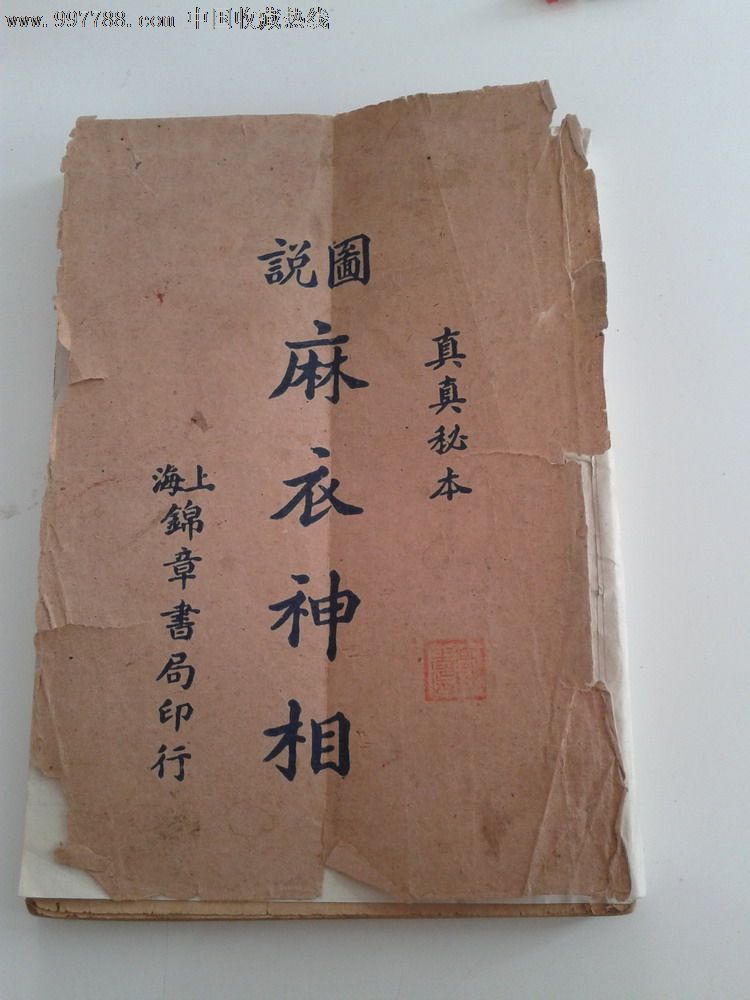 www.997788.com 中国收藏热线
真真秘本
圖說
麻衣神相
上海
錦章書局印行